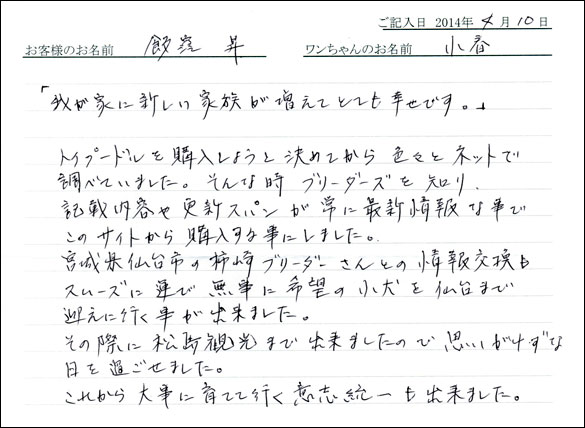 ご記入日 2014年 4月10日
お客様のお名前 飯窪 昇 ワンちゃんのお名前 小春
「我が家に新しい家族が増えてとても幸せです。」
トイプードルを購入しようと決めてから色々とネットで
調べていました。そんな時ブリーダーズを知り、
記載内容や更新スパンが常に最新情報な事で
このサイトから購入する事にしました。
宮城県仙台市の柿崎ブリーダーさんとの情報交換も
スムーズに運び無事に希望の小犬を仙台まで
迎えに行く事が出来ました。
その際に松島観光まで出来ましたので思いがけずな
日を過ごせました。
これから大事に育てて行く意志統一も出来ました。